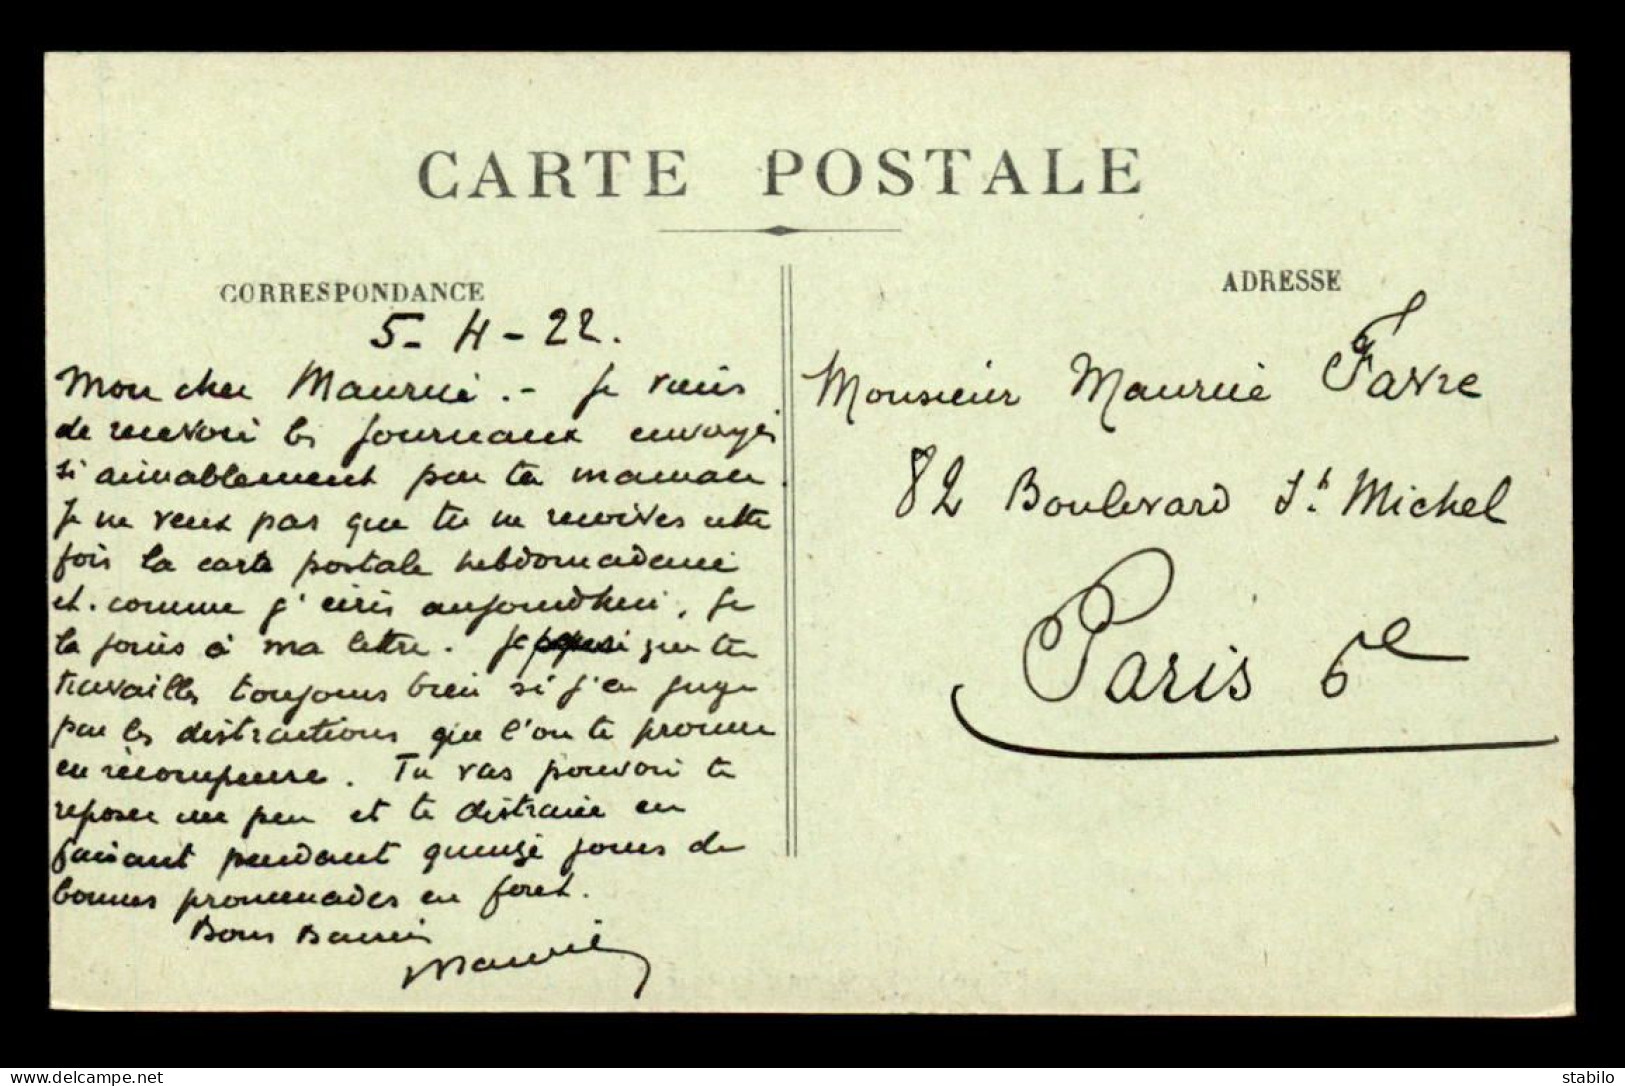 CARTE POSTALE
CORRESPONDANCE
5-4-22.
Mon cher Maurice.- Je viens
de recevoir les journaux envoyés
si aimablement par ta maman.
Je ne veux pas que tu ne reçoives cette
fois la carte postale hebdomadaire
et comme j'écris aujourd'hui, je
la joins à ma lettre. Je que tu
travailles toujours bien si j'en juge
par les distractions que l'on te promet
en récompense. Tu vas pouvoir te
reposer un peu et te distraire en
faisant pendant quinze jours de
bonnes promenades en forêt.
Bons Baisers
Maurice
ADRESSE
Monsieur Maurice Favre
82 Boulevard St. Michel
Paris 6e
www.delcampe.net
stabilo